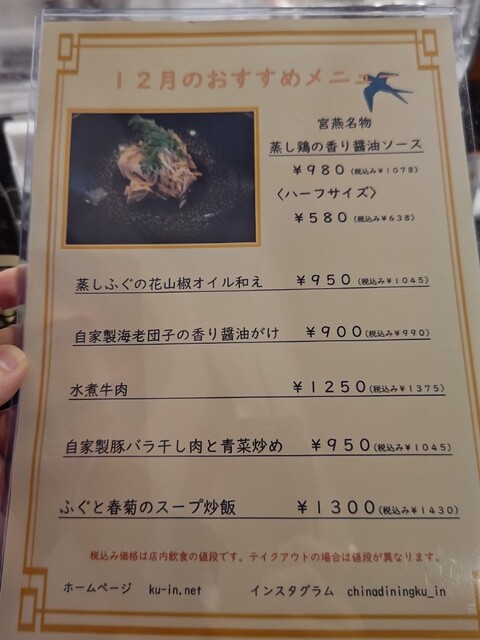 12月のおすすめメニュー
宮燕名物
蒸し鶏の香り醤油ソース
¥980(税込み¥1078)
〈ハーフサイズ〉
¥580(税込み¥638)
蒸しふぐの花山椒オイル和え ¥950(税込み¥1045)
自家製海老団子の香り醤油がけ ¥900(税込み¥990)
水煮牛肉 ¥1250(税込み¥1375)
自家製豚バラ干し肉と青菜炒め ¥950(税込み¥1045)
ふぐと春菊のスープ炒飯 ¥1300(税込み¥1430)
税込み価格は店内飲食の値段です。テイクアウトの場合は値段が異なります。
ホームページ ku-in.net インスタグラム chinadiningku_in